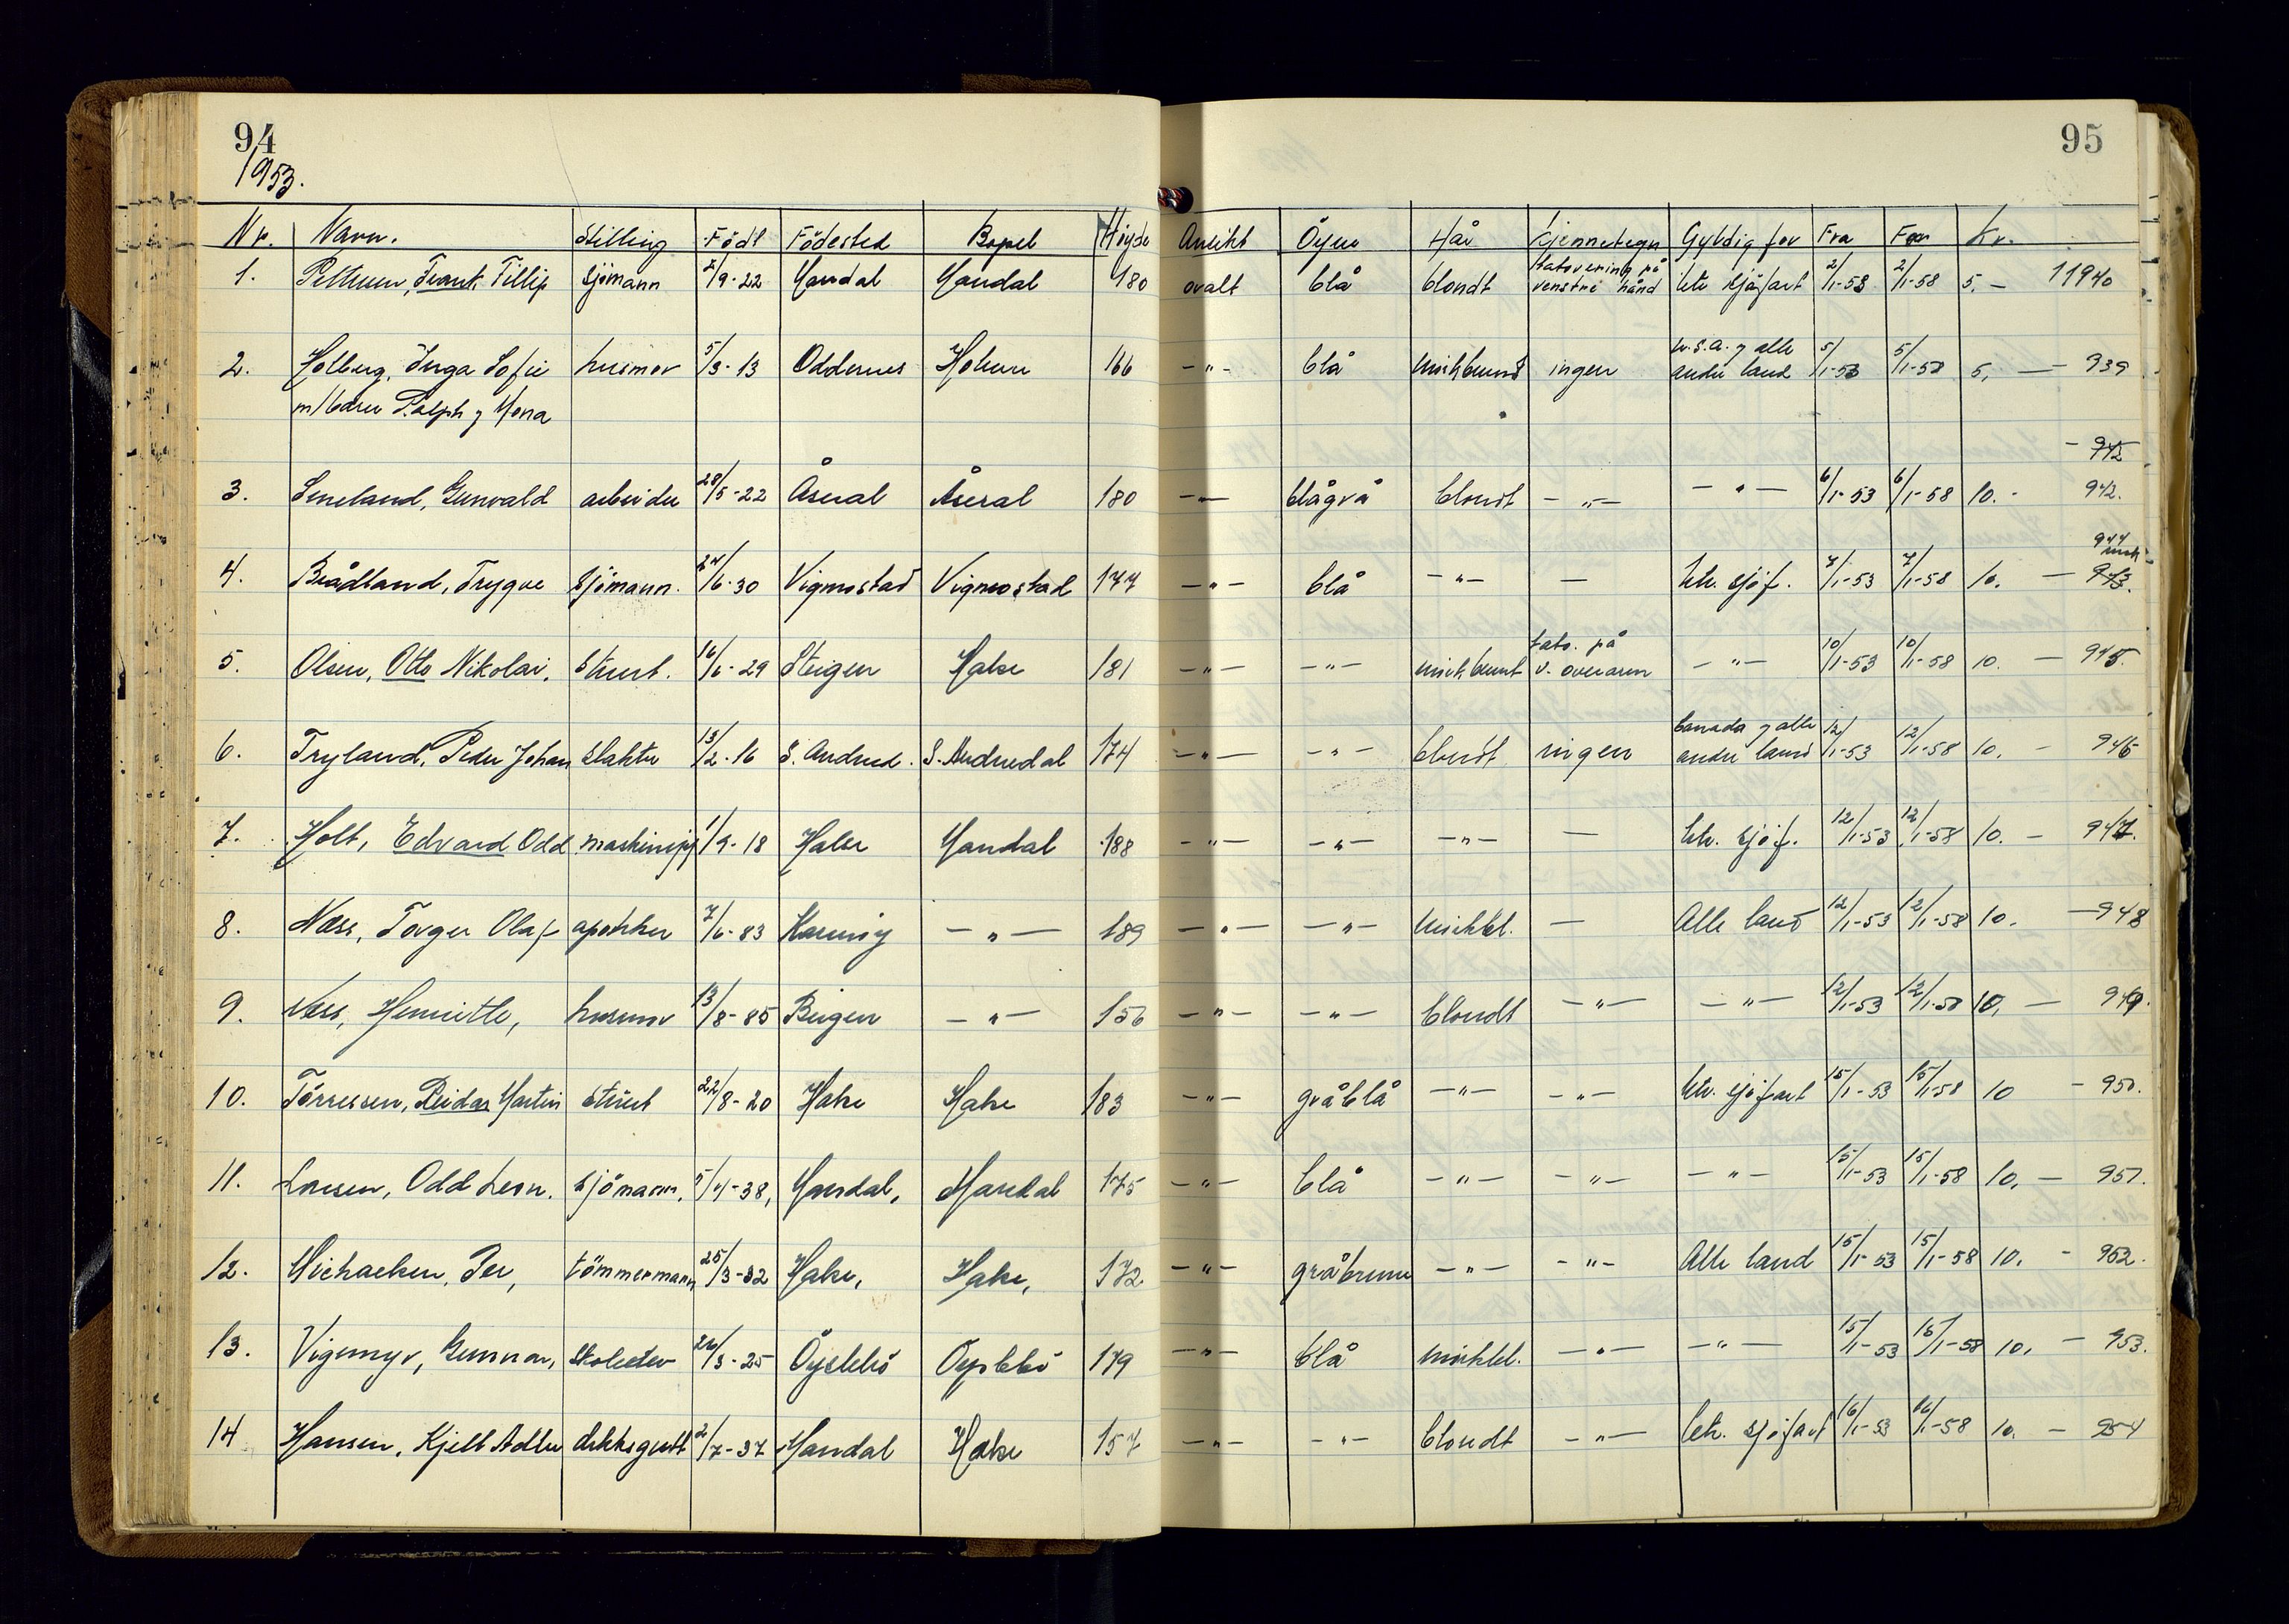 94
1953.
95
Nr. Navn. Stilling Födt Födested Bopel Höyde Ansikt Öyne Hår Kjennetegn Gyldig for Fra For Kr.
tatovering på
1. Frank Fillip sjömann 2/9-22 Mandal Mandal 180 ovalt blå blondt venstre hånd utr. sjöfart 2/1-53 2/1-58 5.- 11940
U.S.A. og alle
2. Holberg, Inga Sofie husmor 5/3-13 Oddernes 166 -"- blå mörkbrunt ingen andre land 5/1-53 5/1-58 5, - 939
m/barn Ralph og Mona
- 942
3. Gunvald arbeider 28/5-22 Åseral Åseral 180 -"- blågrå blondt -"- -"- 6/1-53 6/1-58 10.- 942.
944
4. Brådland, Trygve Sjömann. 24/6-30 Vigmostad Vigmostad 177 -"- blå -"- - utr. sjöf. 7/1-53 7/1-58 10. - 943.
tato. på
5. Olsen, Otto Nikolai, stuert. 16/6-29 Steigen Halse 181 -"- -"- mörkbrunt v. overarm -"- 10/1-53 10/1-58 10. - 945.
Canada og alle
6. Tryland, Peder Johan slakter 13/2-16 S. Audned. S. Audnedal 174 -"- -"- blondt ingen andre land 12/1-53 12/1-58 10. - 946
7. Holt, Edvard Odd 1/9-18 Halse Mandal 188 -"- -"- -"- - utr. sjöf. 12/1-53 12/1-58 10. - 947.
8. Næss, Torger Olaf apoteker 7/6-83 -"- 189 -"- -"- mörkbl. - Alle land 12/1-53 12/1-58 10. - 948
9. Næss, Henriette, husmor 13/8-85 Bergen -"- 156 -"- -"- blondt -"- -"- 12/1-53 12/1-58 10, - 949.
10. Törressen, Reidar Martin stuert 22/8-20 Halse Halse 183 -"- gråblå -"- -"- utr. sjöfart 15/1-53 15/1-58 10 - 950.
11. Larsen, Odd Leon. sjömann, 5/4-38, Mandal, Mandal 175 -"- blå -"- -"- -"- 15/1-53 15/1-58 10, - 951.
12. Michaelsen, Per, tömmermann 25/3-32 Halse, Halse, 172 -"- gråbrune -"- -"- Alle land 15/1-53 15/1-58 10. - 952.
13. Vigemyr, Gunnar, 26/3-25 Öyslebö Öyslebö 179 -"- blå mörkbl. -"- -"- 15/1-53 15/1-58 10. - 953.
14 Hansen, Kjell Adler dekksgutt 2/7-37 Mandal Halse 157 -"- -"- blondt -"- utr. sjöfart 16/1-53 16/1-58 10. - 954